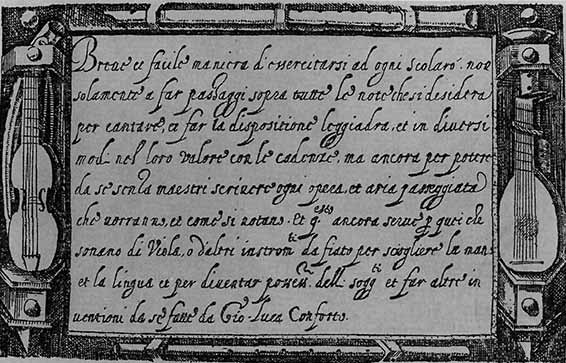 Breue et facile maniera d'essercitarsi ad ogni scolaro. non
solamente a far passaggi sopra tutte le note che si desidera
per cantare, et far la dispositione leggiadra, et in diuersi
modi nel loro valore con le cadenze, ma ancora per potere
da se senza maestri scriuere ogni opera, et aria passeggiata
che vorranno, et come si notano. Et q.esto ancora serue p quei che
sonano di Viola, o d'altri instrom.ti da fiato per sciogliere la man
et la lingua et per diuentar possess.ri delli sogg.ti et far altre in
uentioni da se fatte da Gio. Luca Conforto.